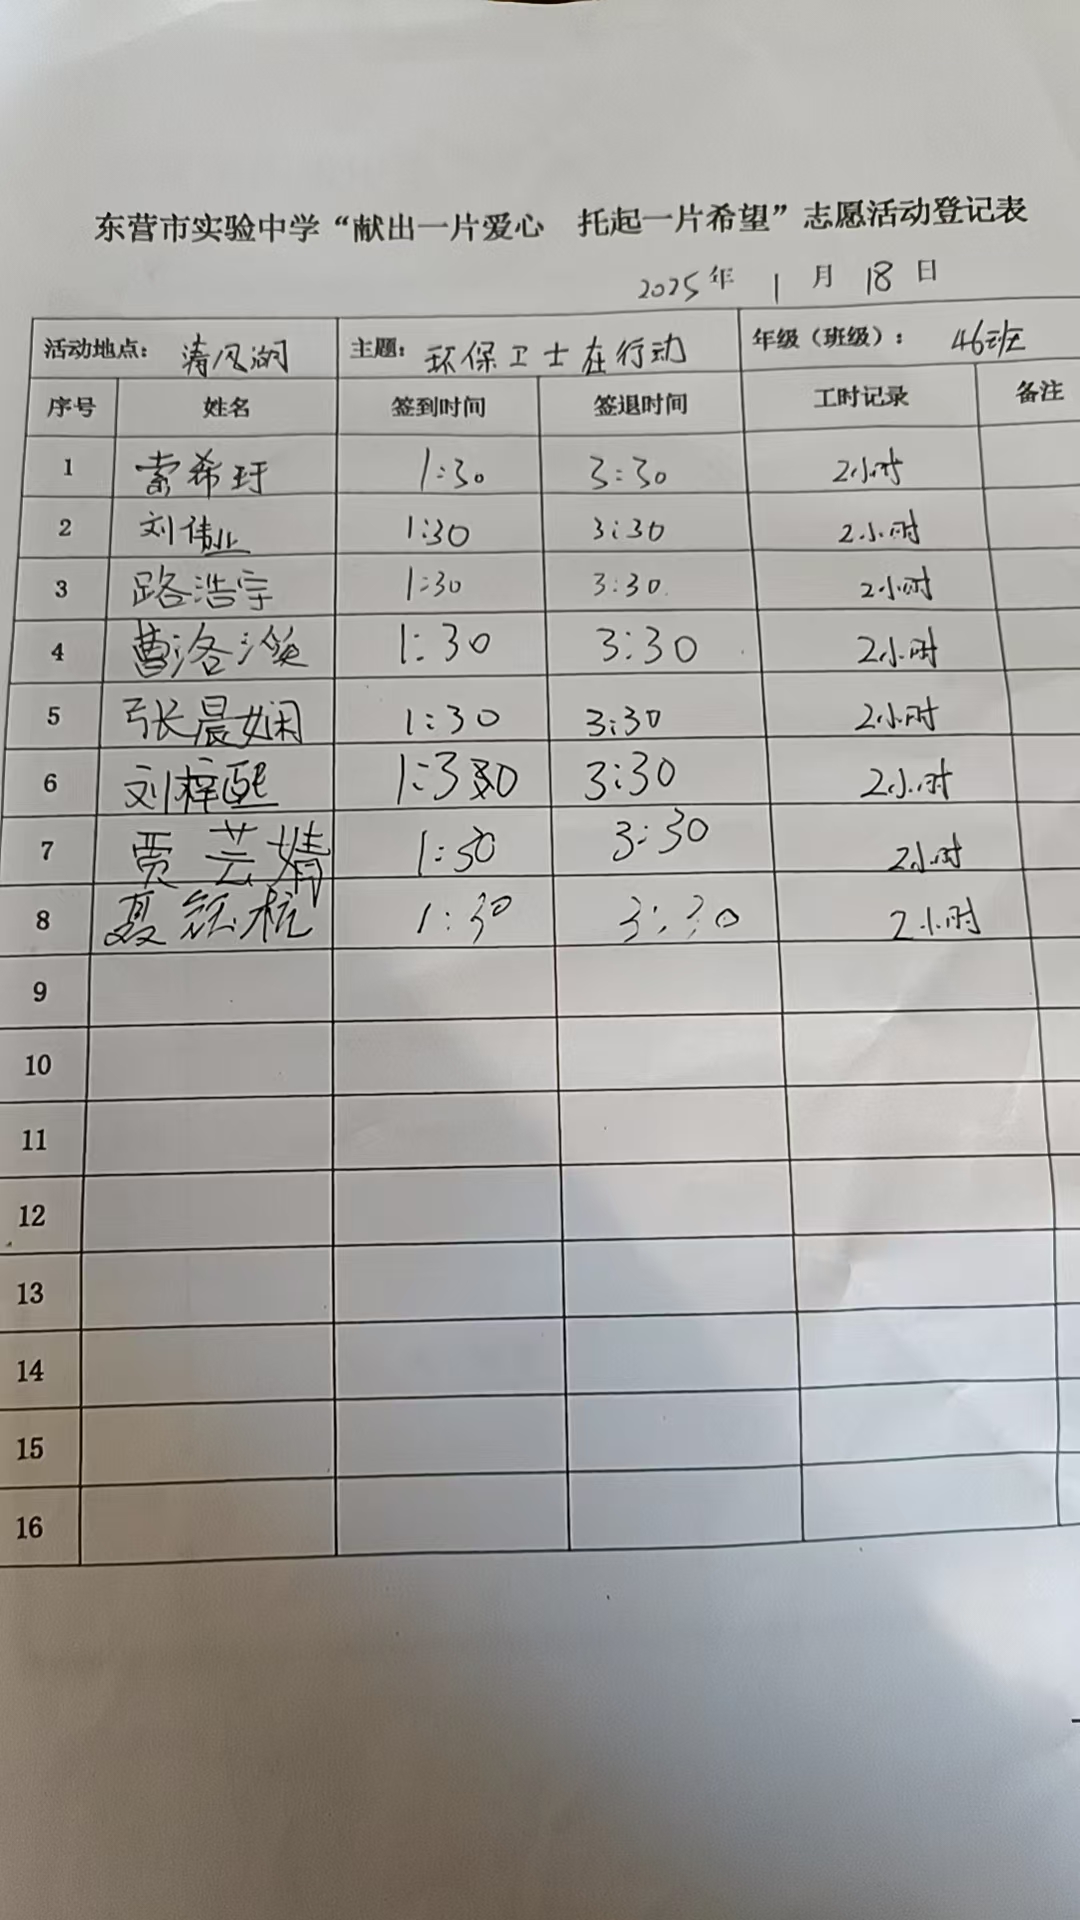 东营市实验中学“献出一片爱心 托起一片希望”志愿活动登记表
2025年 1月 18日
活动地点： 清风湖 主题： 环保卫士在行动 年级（班级）： 46班
序号 姓名 签到时间 签退时间 工时记录 备注
1 索希玗 1:30 3:30 2小时
2 刘伟业 1:30 3:30 2小时
3 路浩宇 1:30 3:30 2小时
4 曹洛 1:30 3:30 2小时
5 张晨娴 1:30 3:30 2小时
6 刘梓熙 1:30 3:30 2小时
7 贾芸婧 1:30 3:30 2小时
8 聂钰杭 1:30 3:30 2小时
9
10
11
12
13
14
15
16